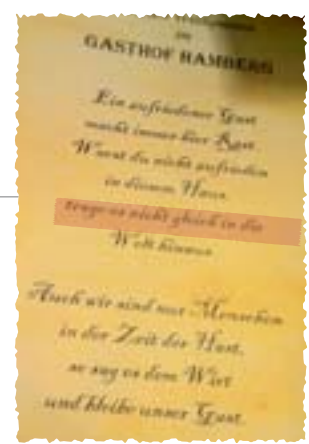 IM
GASTHOF RAMBERG
Ein zufriedener Gast
macht immer hier Rast.
Warst du nicht zufrieden
in diesem Haus
trage es nicht gleich in die
Welt hinaus
Auch wir sind nur Menschen
in der Zeit der Hast,
so sag es dem Wirt
und bleibe unser Gast.